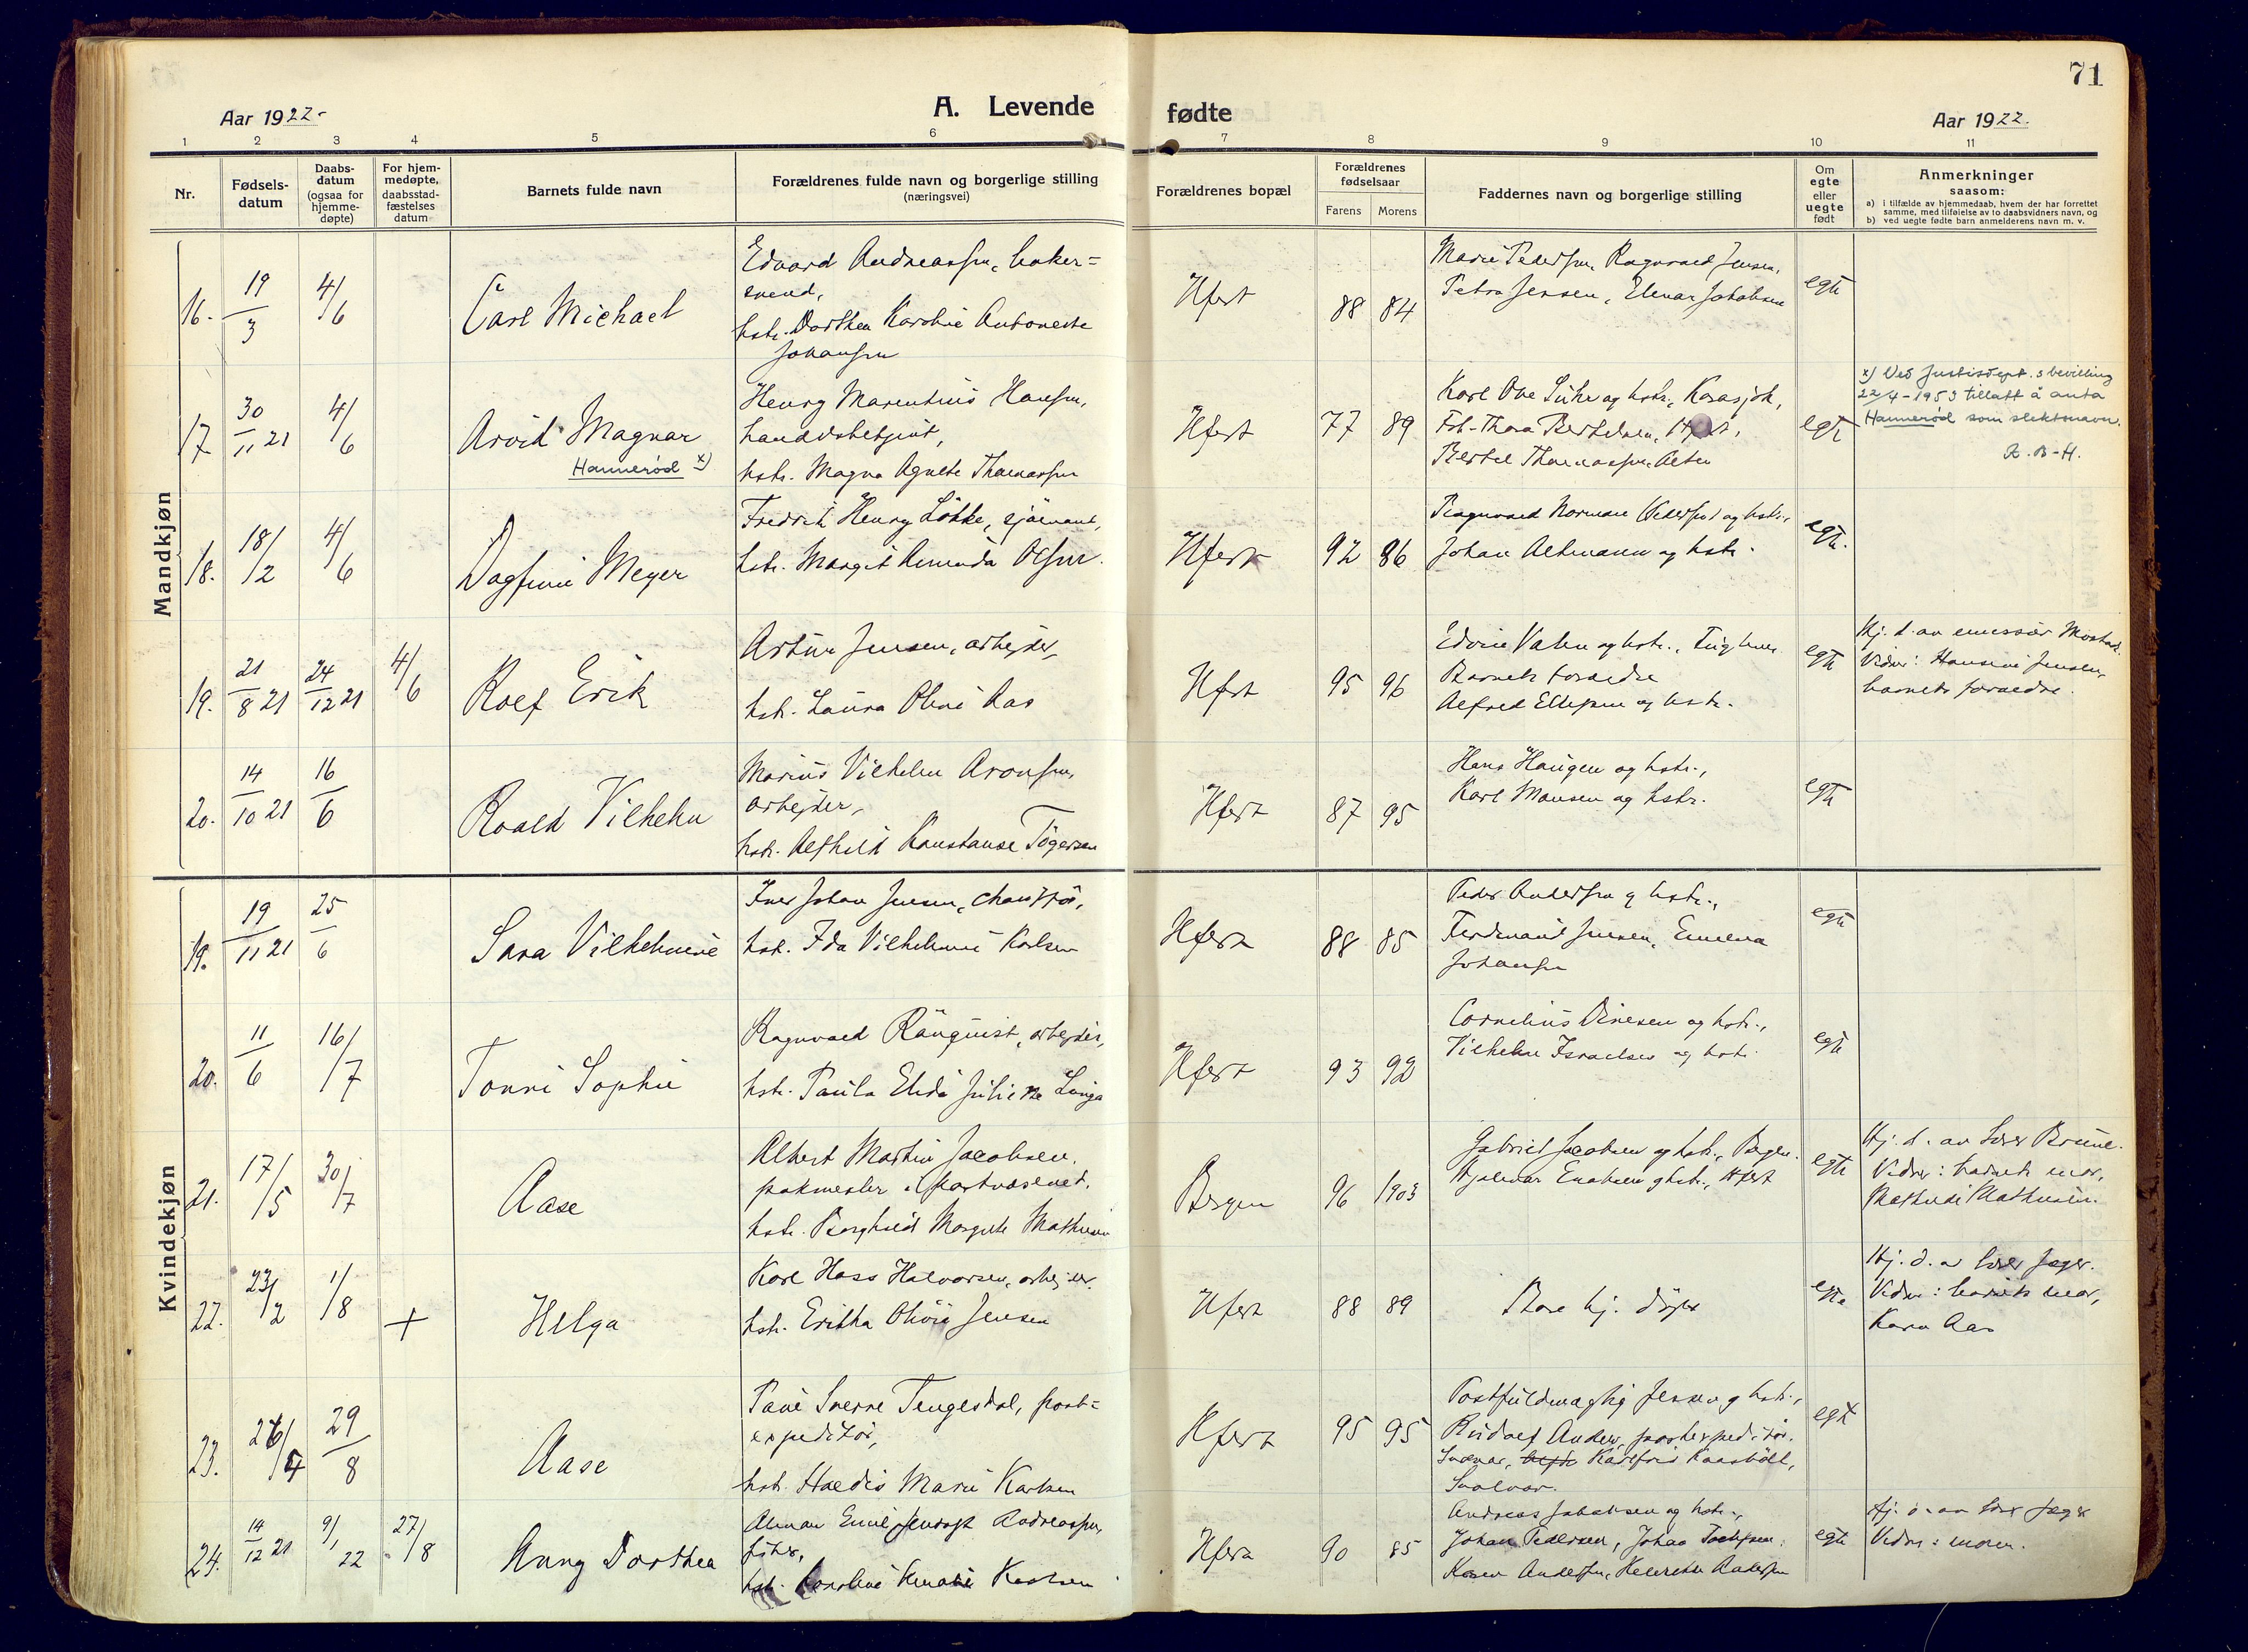 71
Aar 1922-
A. Levende fødte
Aar 1922.
1 2 3 4 5 6 7 8 9 10 11
Nr.
Fødsels-
datum
Daabs-
datum
(ogsaa for
hjemme-
døpte)
For hjem-
medøpte,
daabsstad-
fæstelses
datum
Barnets fulde navn
Forældrenes fulde navn og borgerlige stilling
(næringsvei)
Forældrenes bopæl
Forældrenes
fødselsaar
Farens Morens
Faddernes navn og borgerlige stilling
Om
egte
eller
uegte
født
Anmerkninger
saasom:
a) i tilfælde av hjemmedaab, hvem der har forrettet
samme, med tilføielse av to daabsvidners navn, og
b) ved uegte fødte barn anmelderens navn m. v.
Mandkjøn
16. 19/3 4/6
Carl Michael
Edvard Andreassen, baker=
svend,
hstr. Dorthea Karoline Antonette
Johansen
Hfest 88 84
Marie Pedersen, Ragnvald Jensen,
Petra Jensen, Elenar Jakobsen
egte
17 30/11 21 4/6
Arvid Magnar
Hannerød x)
Henry Marentius Hansen,
handelsbetjent,
hstr. Magna Agnete Thomassen
Hfest 77 89
Karl Ove og hstr., Karasjok,
Frk. Thora Bertelsen, Hfest,
Bertel Thomassen, Alten
egte
x) Ved Justisdept.s bevilling
22/4-1953 tillatt å anta
Hannerød som slektsnavn.
R. B-H.
18. 18/2 4/6
Dagfinn Meyer
Fredrik Henry Løkke, sjømand,
hstr. Margit Amanda Olsen.
Hfest 92 86
Ragnvald Normann Pedersen og hstr.,
Johan Altmann og hstr.
egte.
19. 21/8 21 24/12 21 4/6
Rolf Erik
Artur Jensen, arbejder,
hstr. Laura Oline Aas
Hfest 95 96
Edvin Valen og hstr.,
Barnets foreldre
Alfred Ellefsen og hstr.
egte
Hj. d. av emissær
Vidner: Hansine Jensen,
barnets foreldre.
20. 14/10 21 16/6
Roald Vilhelm
Marius Vilhelm Aronsen,
arbejder,
hstr. Alfhild Konstanse Tøgersen
Hfest 87 95
Hans Haugen og hstr.,
Karl Monsen og hstr.
egte
Kvindekjøn
19. 19/11 21 25/6
Sara Vilhelmine
Iver Johan Jensen, chauffør,
hstr. Ida Vilhelmine Karlsen
Hfest 88 85
Peder Andersen og hstr.,
Ferdinand Jensen, Emma
Johansen
egte
20. 11/6 16/7
Tonni Sophie
Ragnvald Rånquist, arbejder,
hstr. Paula Elida Juliane Linga
Hfest 93 92
Cornelius Dinesen og hstr.,
Vilhelm Israelsen og hstr.
egte
21. 17/5 30/7
Aase
Albert Martin Jacobsen,
pakmester i postvæsenet.
hstr. Borghild Margrete Mathisen
Bergen 96 1903
Gabriel Jacobsen og hstr., Bergen.
Hjalmar Enoksen og hstr., Hfest
egte
Hj. d. av lærer Brune.
Vidner: barnets mor,
Mathilde Mathisen.
22. 23/2 1/8 +
Helga
Karl Hass Halvorsen, arbejder.
hstr. Eritha Olivia Jensen
Hfest 88 89
Bare hj. døpt
egte
Hj. d. av lærer Jæger.
Vidner: barnets mor,
Kara Aas
23. 26/4 29/8
Aase
Paul Sverre Tengesdal, post=
expeditør,
hstr. Haldis Marie Karlsen
Hfest 95 95
Postfuldmægtig Jensen og hstr.,
Rudolf Andersen, postexpeditør.
Svolvær, Karlfrid Kaarbøll,
Svolvær.
egte
24. 14/12 21 9/1 22 27/8
Anny Dorthea
Almar Emil Andreassen,
fisker,
hstr. Karoline Karlsen
Hfest 90 85
Andreas Jakobsen og hstr.,
Johan Pedersen, Johan
Karen Andersen, Henrikke Andersen
egte
Hj. d. av lærer Jæger
Vidner: moren.